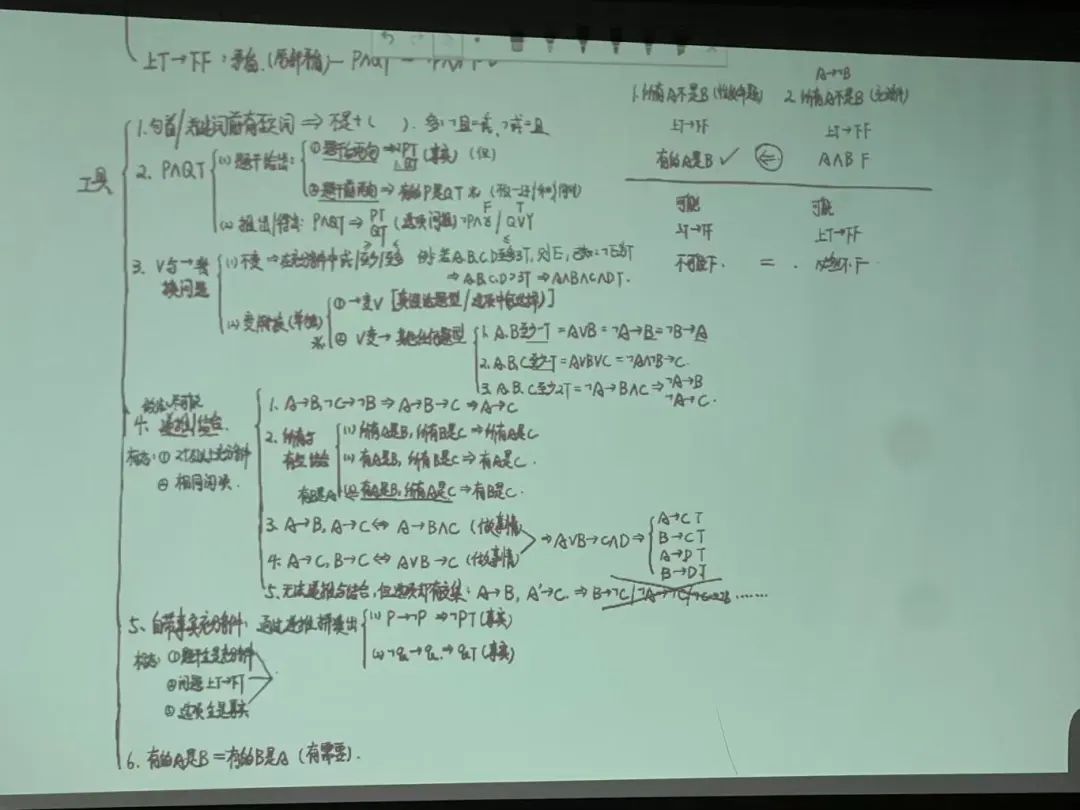 上T→下F：矛盾.(局部矛盾)— P∧Q T —
A→¬B
1.所有A不是B(性质命题) 2.所有A不是B(充分条件)
上T→下F 上T→下F
有的A是B✓ ⇐ A∧B F
可能 可能
上T→下F 上T→下F
不可能F. = .
工具
1.句首/ 前有否词 ⇒ 不是+( ). ¬且=或,¬或=且
2. P∧Q T
(1)题干给出:
①题干 两句⇒PT QT(事实)(但)
②题干 ⇒有的P是Q T
(2)推出/得出: P∧QT⇒ PT QT (选项问题)
3. ∨与→变换问题
(1)不变⇒在充分条件中或/至少/至多 例:若A.B.C.D至多3T,则E,
⇒A.B.C.D>3T⇒A∧B∧C∧D T.
(2)变
①→变∨
②∨变→ 其他任何题型
1. A.B至少一T=A∨B=¬A→B=¬B→A
2. A.B.C至少一T=A∨B∨C=¬A∧¬B→C.
3. A.B.C至少2T=¬A→B∧C⇒¬A→B ¬A→C.
4. 递推/结合.
标志:①2个及以上充分条件
②相同词项.
1. A→B,¬C→¬B⇒A→B→C⇒A→C
2. 所有与有的结合
(1)所有A是B,所有B是C⇒所有A是C
(2)有A是B,所有B是C⇒有A是C.
有B是A (3)有A是B,所有A是C⇒有B是C.
3. A→B, A→C⇔A→B∧C (做事情)
4. A→C, B→C⇔A∨B→C (做事情)
⇒A∨B→C∧D⇒
A→C T
B→C T
A→D T
B→D T
5.无法递推与结合,但选项却有交集: A→B, A'→C.⇒B→C/¬A→¬C/ ……
5、自带事实充分条件: 通过递推 推出
(1) P→¬P ⇒¬PT(事实)
(2) ¬Q→Q.⇒QT(事实)
标志:①题干全是充分条件
②问题上T→下T
③选项全是事实
6. 有的A是B=有的B是A (有需要).